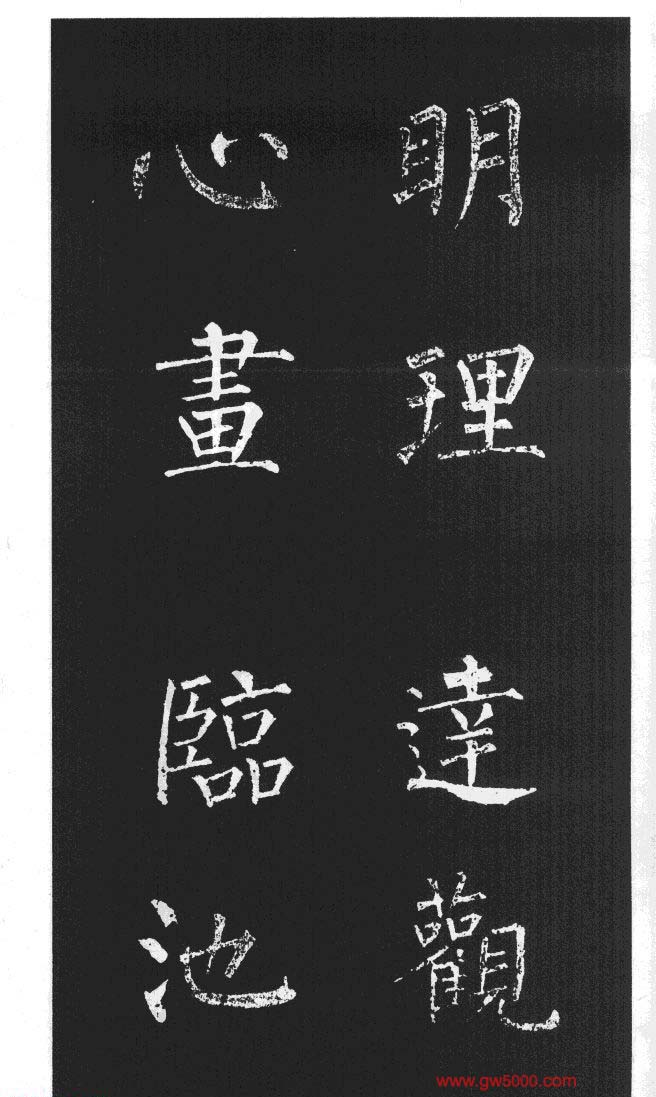 明理達觀
心畫臨池
www.gw5000.com